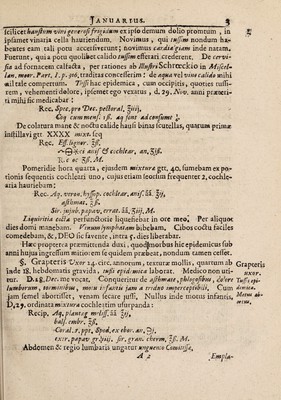 JANUARIUS. 3
scilicet haustum vini generosi frigidum ex ipso demum dolio promtum, in
ipsamet vinaria cella hauriendum. Novimus, qui tussim nondum ha-
bentes eam tali potu accersiverunt; novimus cardialgiam inde natam.
Fuerunt, quia potu quolibet calido tussim efferari crederent. De cervi-
sia ad fornacem calfacta, per rationes ab Illustri Schröckio in Miscel-
lan. mor. Part. I. p. 36, traditas conceßerim: de aqua vel vino calido mihi
nil tale compertum. Tussi hac epidemica, cum occipitis, quoties tussi-
rem, vehementi dolore, ipsemet ego vexatus, d. 29. Nov. anni præteri-
ti mihi sic medicabar:
Rec. Spec. pro Dec. pectoral. ℥iij,
Coq cum mens. iß. aq font ad consumt ⅓.
De colatura mane & noctu calide hausi binas scutellas, quarum primæ
instillavi gtt. XXXX mixt. seq
Rec. Ess. lignor. ʒß.
anis. & cochlear, an. ʒiß.
℞ c oc ʒß. M.
Pomeridie hora quarta, ejusdem mixturæ gtt. 40. sumebam ex po-
tionis sequentis cochleari uno, cujus etiam seorsim frequenter 2. cochle-
aria hauriebam:
Rec. Aq. veron. hyssop. cochlear. anis. āā. ℥ij,
asthmat. ℥ß.
Sir. jujub. papav. errat. āā. ℥ij, M.
Liquiritia cocta perfunctorie liquefiebat in ore meo. Per aliquot
dies domi manebam. Vinum lymphatum bibebam. Cibos coctu faciles
comedebam, &, DEO sic favente, intra 9. dies liberabar.
Hæc propterea præmittenda duxi, quod morbus hic epidemicus sub
anni hujus ingressum mitior esse quidem præbeat, nondum tamen cesset.
§. Grapteris Uxor 24. circ. annorum, texturæ mollis, quartum ab
inde 18. hebdomatis gravida, tussi epidemica laborat. Medico non uti-
tur. D. 18. Dec. me vocat. Conqueritur de asthmate, phlogosibus, dolore
lumborum, vomitibus, motu infantis jam a triduo imperceptibili. Cum
jam semel abortisset, venam secare jussi. Nullus inde motus infantis,
D, 29. ordinata mixtura cochleatim usurpanda:
Recip. Aq. plantag meliss. āā. ℥ij,
bals. embr. ℥ß,
Coral. r. ppt. Spod. ex ebor. an. ℈j,
extr. papav gr. viij. sir. gran. cherm, ℥ß. M.
Abdomen & regio lumbaris ungatur unguento Comitissa,
A 2 Empla-
Grapteris
uxor.
Tussi epi-
demica.
Motus ab-